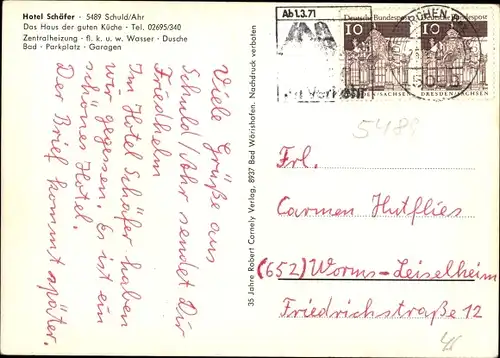 Hotel Schäfer · 5489 Schuld/Ahr
Das Haus der guten Küche · Tel. 02695/340
Zentralheizung · fl. k. u. w. Wasser · Dusche
Bad · Parkplatz · Garagen
Viele Grüße aus
Schuld/Ahr sendet Dir
Friedhelm
Im Hotel Schäfer haben
wir gegessen. Es ist ein
schönes Hotel.
Der Brief kommt später.
35 Jahre Robert Cornely Verlag, 8937 Bad Wörishofen. Nachdruck verboten
Ab 1.3.71
Deutsche Bundespost
10
DRESDEN-SACHSEN
Deutsche Bundespost
10
DRESDEN-SACHSEN
5489
Frl.
Carmen Hutflies
(652) Worms-Leiselheim
Friedrichstraße 12